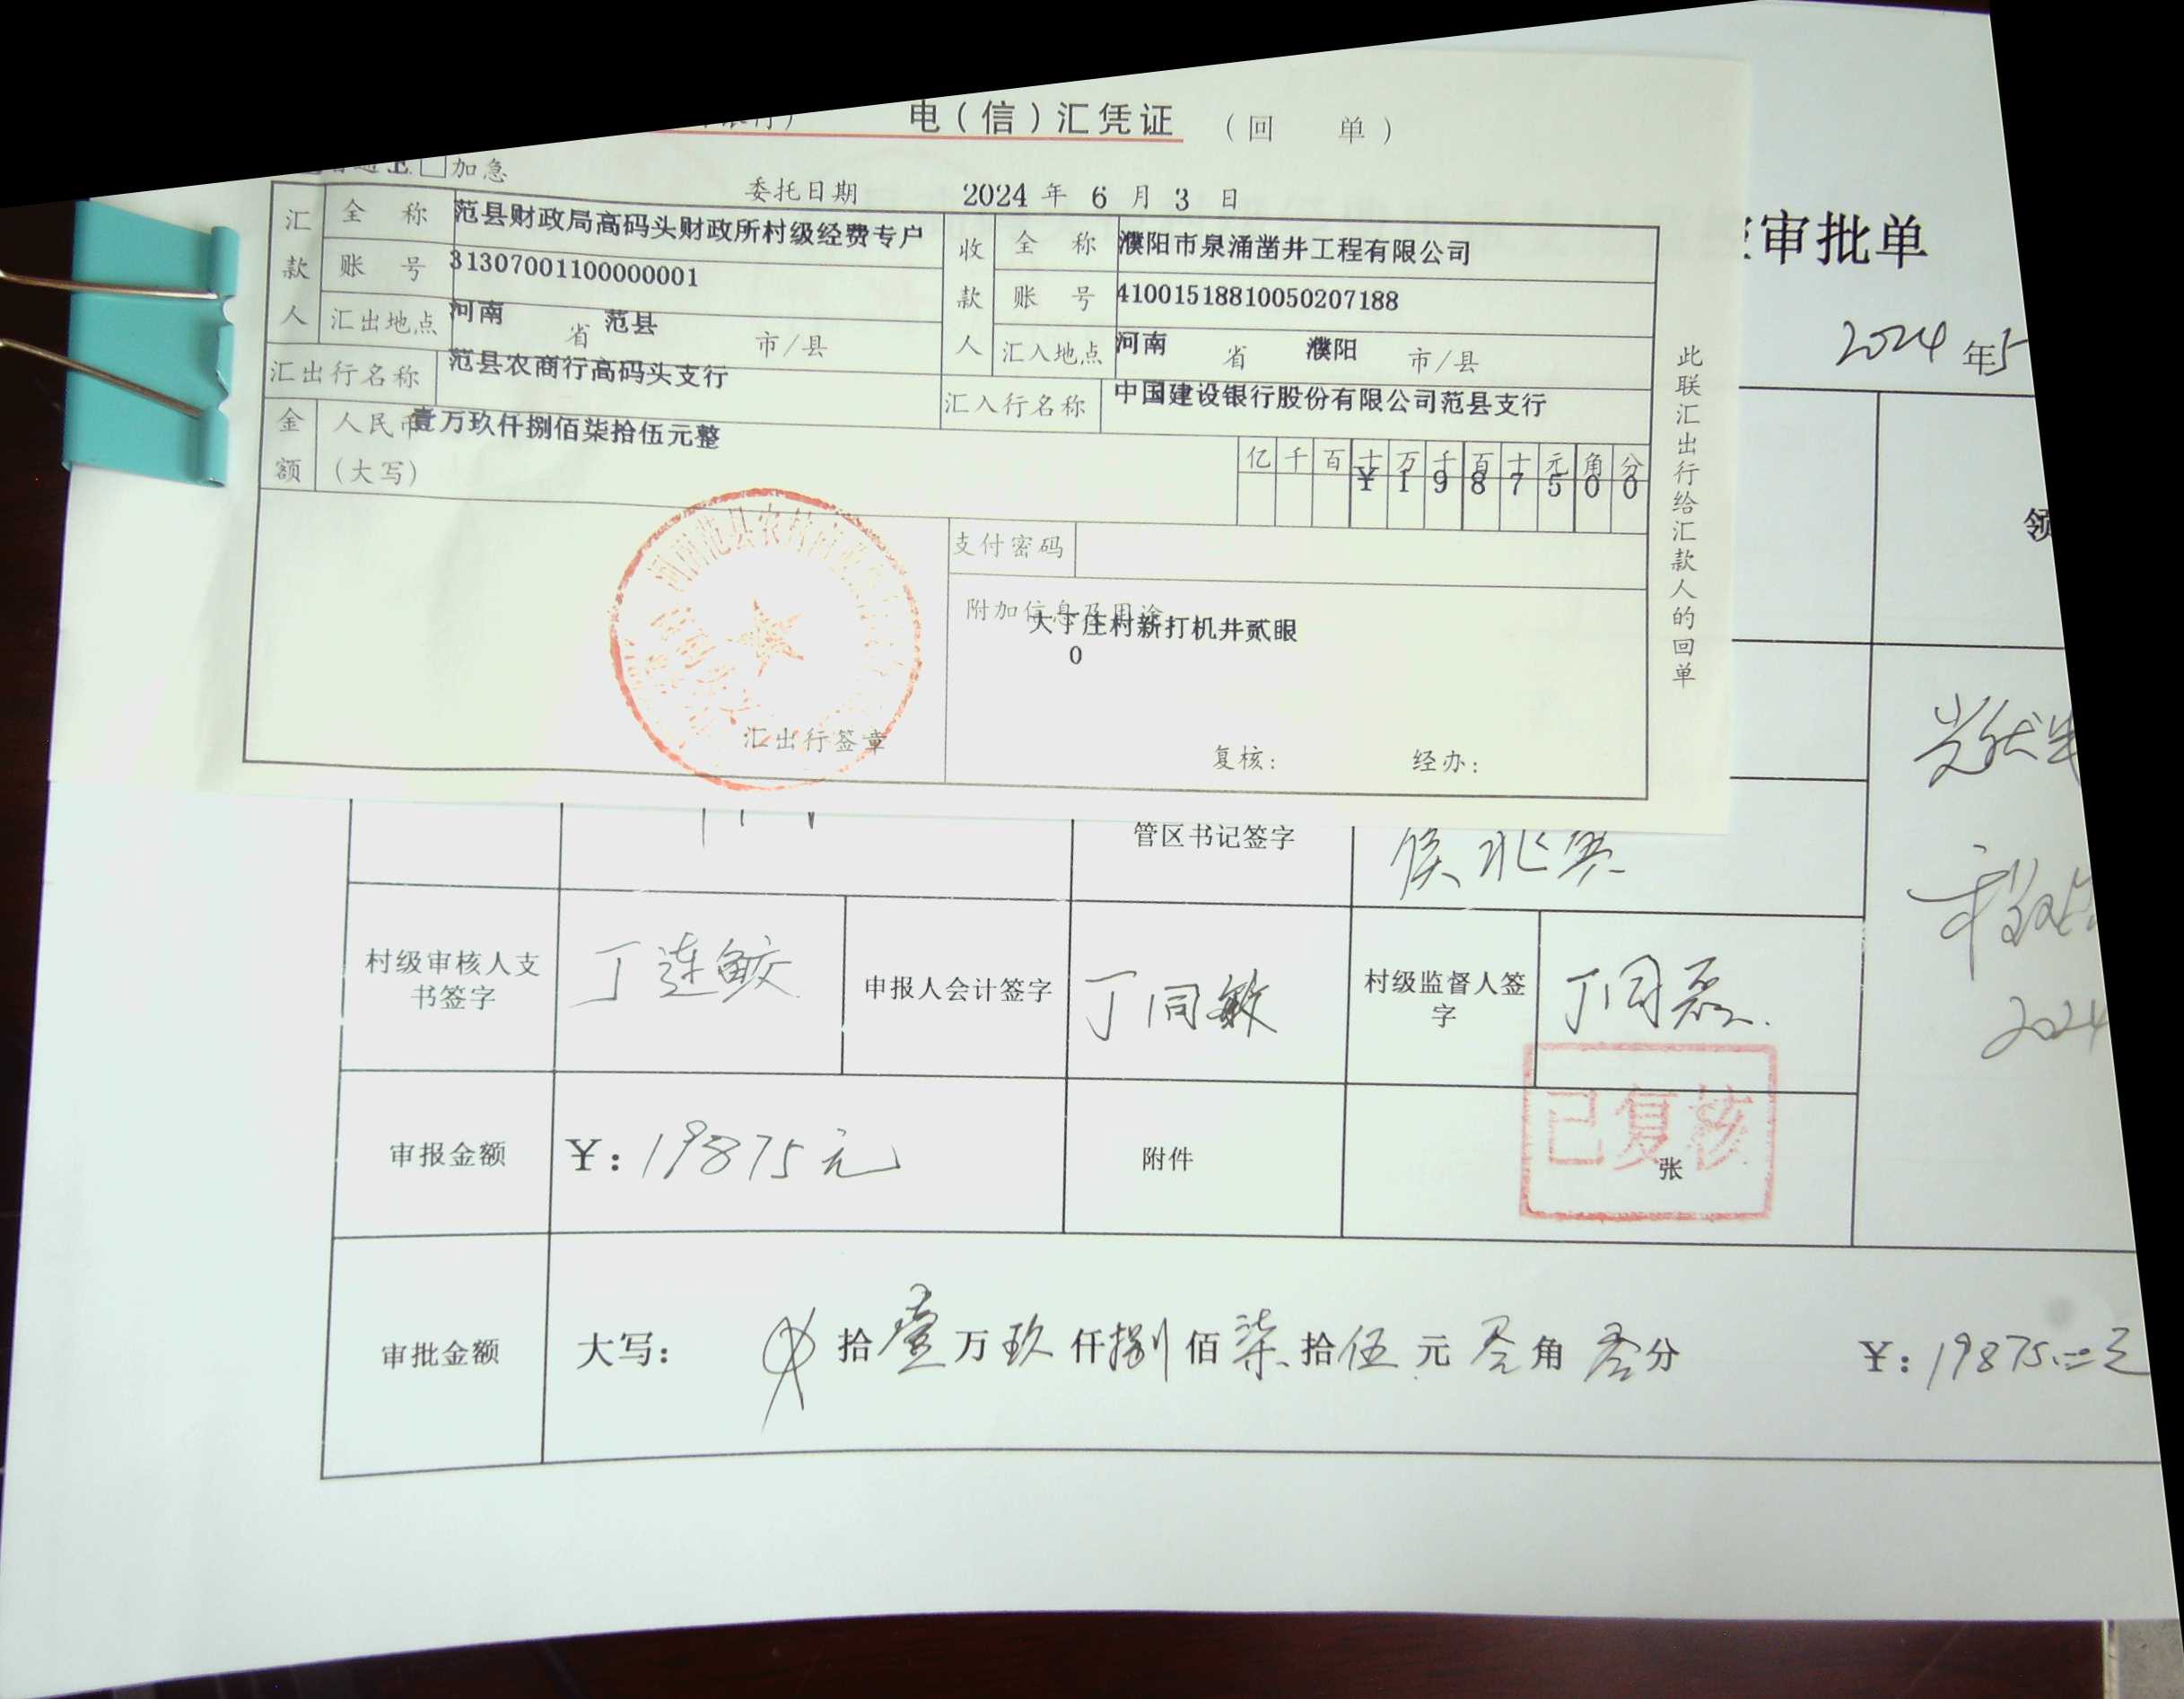 电（信）汇凭证 （回 单）
加急
委托日期 2024 年 6 月 3 日
汇款人 全 称 范县财政局高码头财政所村级经费专户 收款人 全 称 濮阳市泉涌凿井工程有限公司
账 号 31307001100000001 账 号 41001518810050207188
汇出地点 河南 省 范县 市/县 汇入地点 河南 省 濮阳 市/县
汇出行名称 范县农商行高码头支行 汇入行名称 中国建设银行股份有限公司范县支行
金额 人民币 壹万玖仟捌佰柒拾伍元整
（大写）
亿 千 百 十 万 千 百 十 元 角 分
¥ 1 9 8 7 5 0 0
支付密码
附加信息及用途
大丁庄村新打机井贰眼
0
汇出行签章
复核： 经办：
此联汇出行给汇款人的回单
审批单
2024 年5
领
管区书记签字 侯兆英
村级审核人支书签字 丁连鲛 申报人会计签字 丁同敏 村级监督人签字 丁同磊
2024
审报金额 ¥：19875元 附件 张
已复核
审批金额 大写： 拾壹万玖仟捌佰柒拾伍元零角零分 ¥：19875.00元